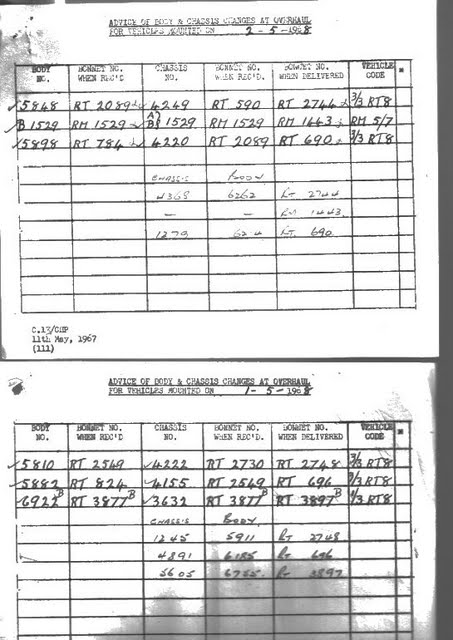 ADVICE OF BODY & CHASSIS CHANGES AT OVERHAUL
FOR VEHICLES MOUNTED ON 2-5-1968
BODY NO. BONNET NO. WHEN REC'D CHASSIS NO. BONNET NO. WHEN REC'D. BONNET NO. WHEN DELIVERED VEHICLE CODE
5848 RT 2089 4249 RT 590 RT 2744 3/3 RT8
B 1529 RM 1529 1529 RM 1529 RM 1443 RM 5/7
5898 RT 784 4220 RT 2089 RT 690 3/3 RT8
CHASSIS BODY
4368 6262 RT 2744
— — RM 1443
1279 RT 690
C.13/CHP
11th May, 1967
(111)
ADVICE OF BODY & CHASSIS CHANGES AT OVERHAUL
FOR VEHICLES MOUNTED ON 1-5-1968
BODY NO. BONNET NO. WHEN REC'D CHASSIS NO. BONNET NO. WHEN REC'D. BONNET NO. WHEN DELIVERED VEHICLE CODE
5810 RT 2549 4222 RT 2730 RT 2748 3/3 RT8
5882 RT 824 4155 RT 2549 RT 696 3/3 RT8
6922 B RT 3877 B 3632 RT 3877 B RT 3897 B RT8
CHASSIS BODY
1245 5911 RT 2748
4891 6185 RT 696
5605 6755 RT 3897